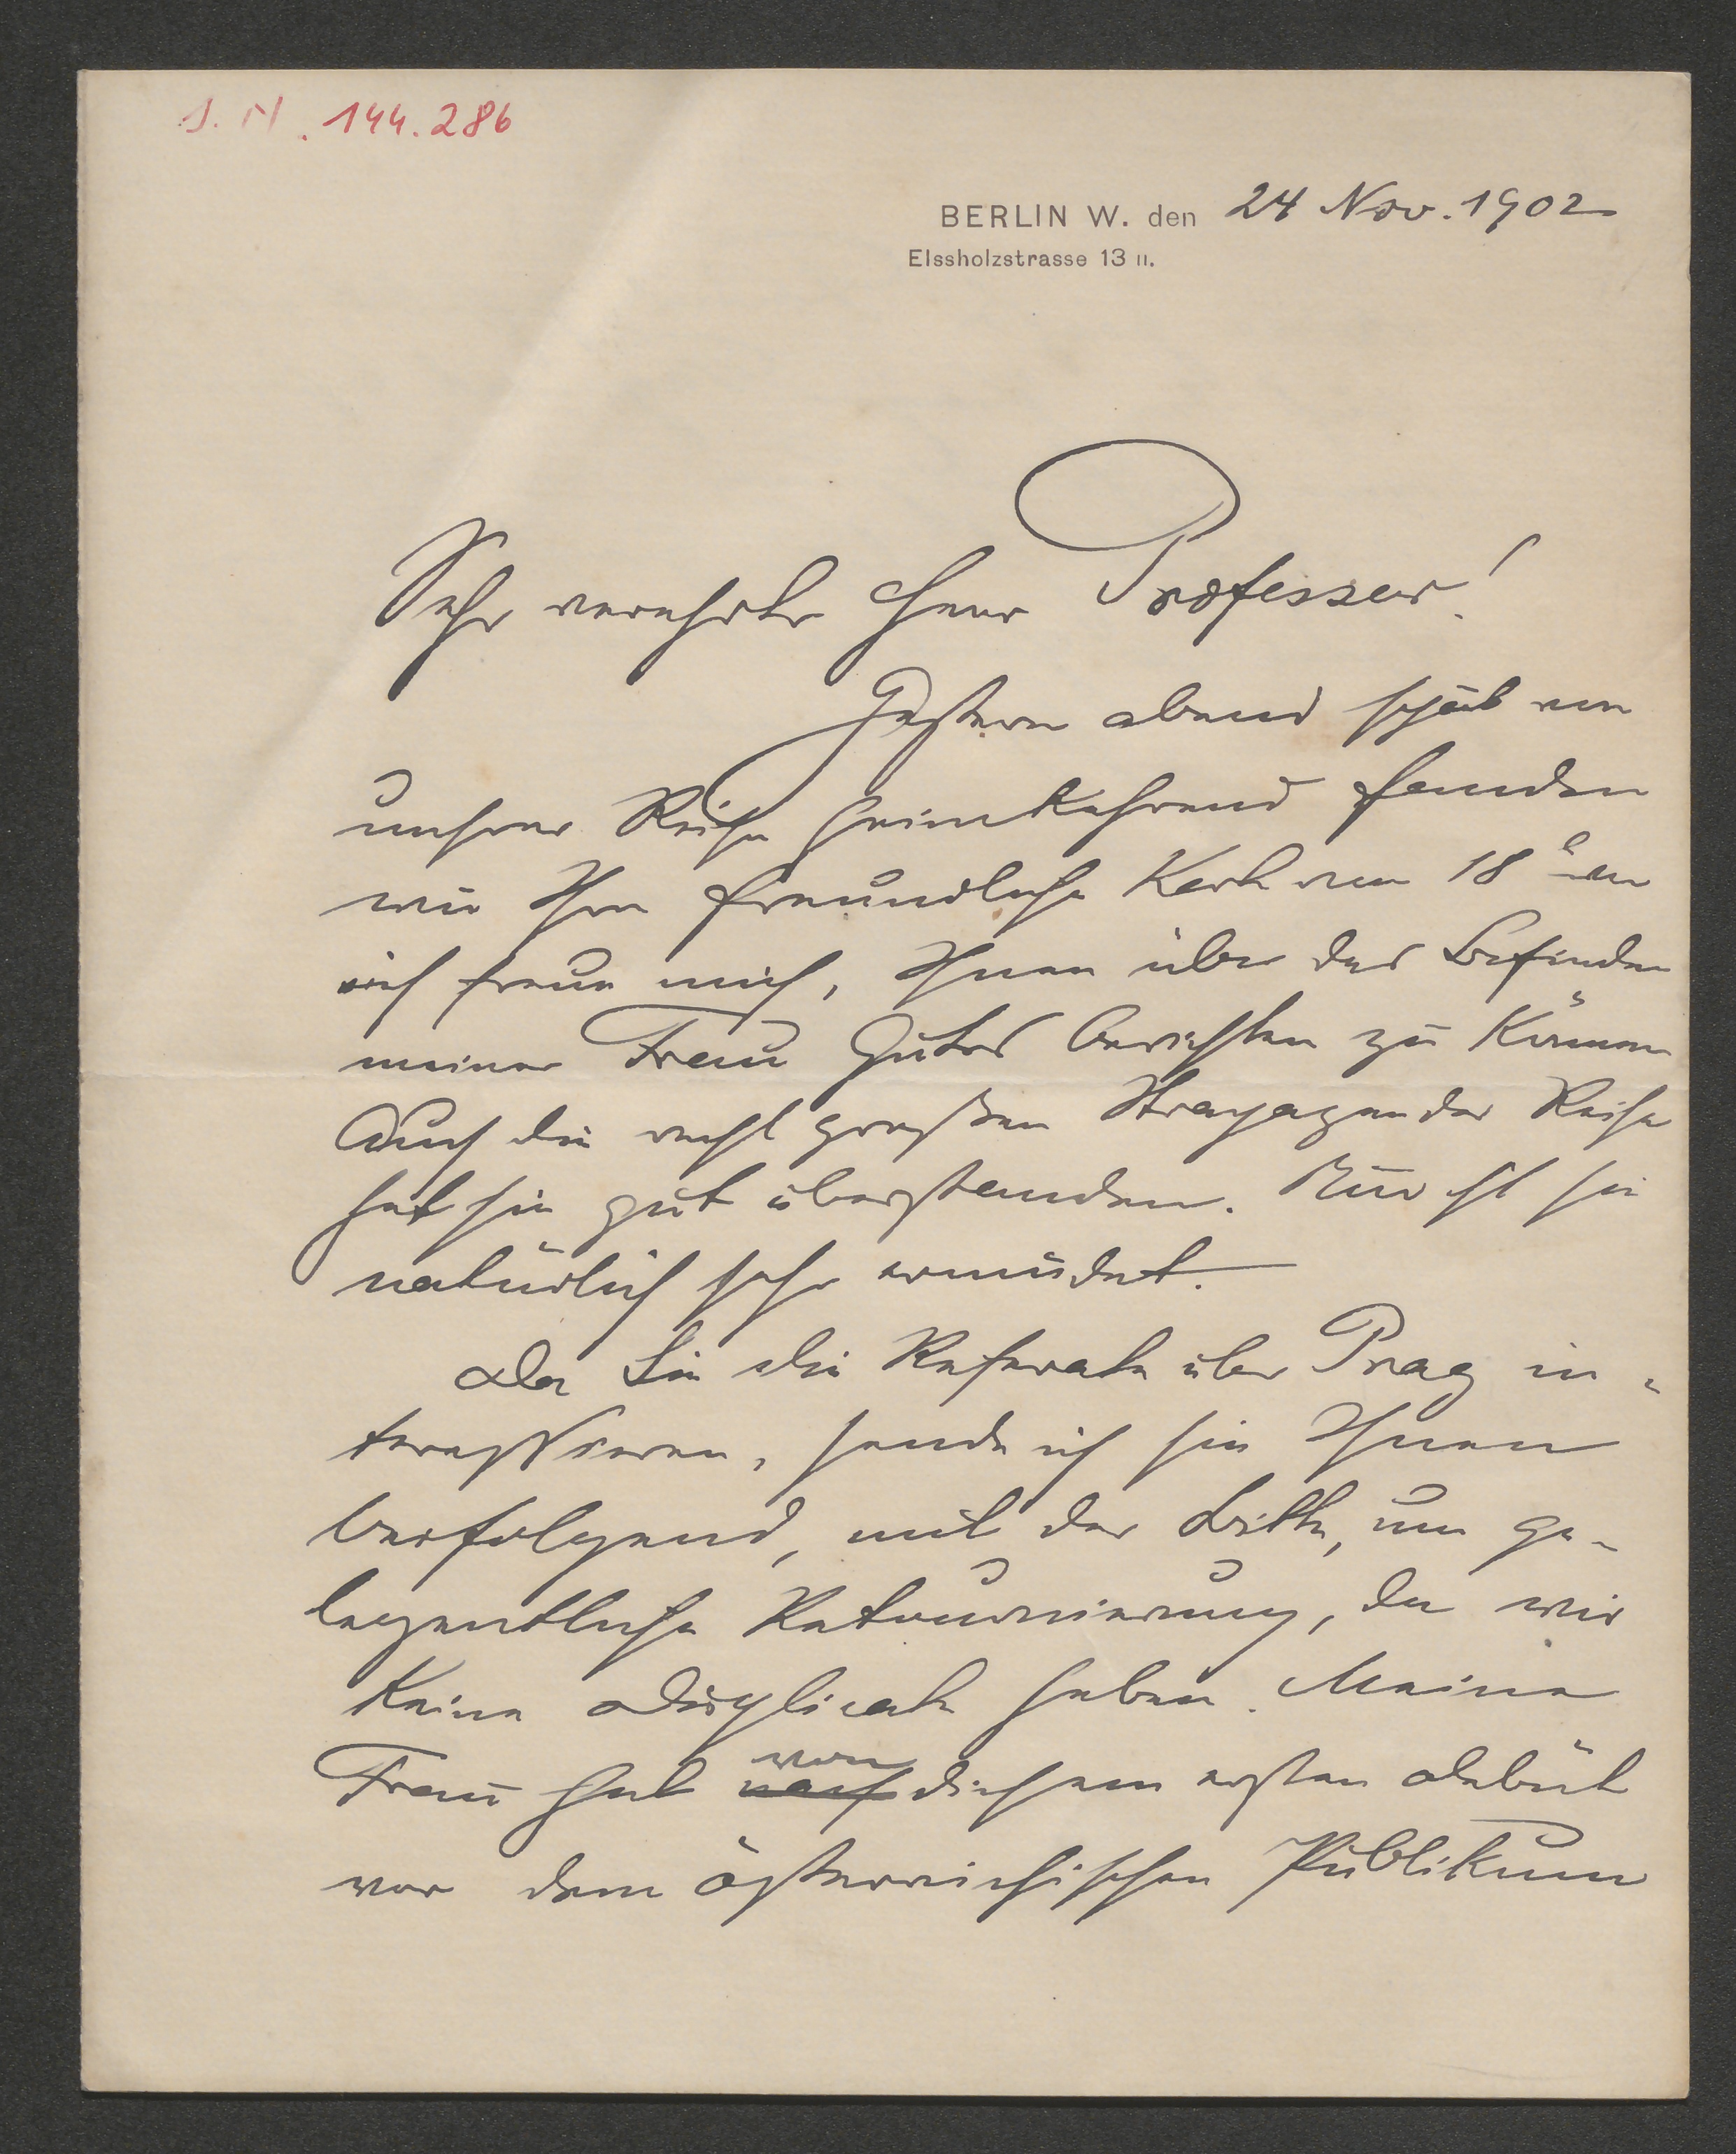 I. N. 144.286
BERLIN W. den 24 Nov. 1902
Elssholzstrasse 13 II.
Sehr verehrter Herr Professor!
Gestern abend spät von
unserer Reise heimkehrend fanden
wir Ihre freundliche Karte vom 18
ich freue mich, Ihnen über das Befinden
meiner Frau Gutes berichten zu können
Auch die recht großen Strapazen der Reise
hat sie gut überstanden. Nur ist sie
natürlich sehr ermüdet.
Da Sie die Referate über Prag in-
teressieren, sende ich sie Ihnen
beifolgend, mit der Bitte, um ge-
legentliche Retournierung, da wir
keine Duplicate haben. Meine
Frau hat von
nach diesem ersten Debüt
vor dem österreichischen Publikum